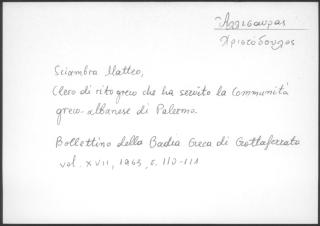 Ἀλλισαυρας
Χριστόδουλος
Sciambra Matteo,
Clero di rito greco che ha servito la Comunità
greco-albanese di Palermo.
Bollettino della Badia Greca di Grottaferrata
vol. XVII, 1963, c. 110-111